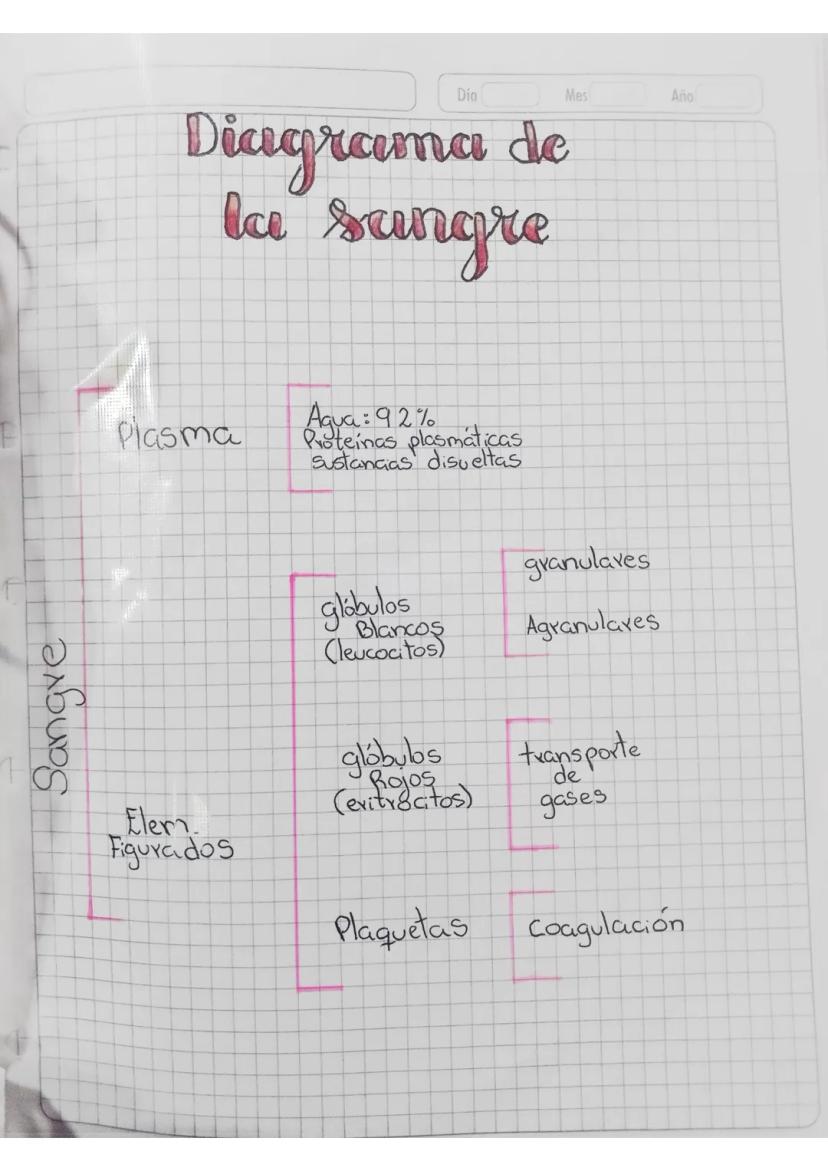 Día
Mes
Año
Diagrama de
la sangre
Sangre
Plasma
Agua: 92%
Proteínas plasmáticas
sustancias disueltas
Elem.
Figurados
glóbulos
Blancos
(leucocitos)
granulares
Agranulares
glóbulos
Rojos
(eritrócitos)
transporte
de
gases
Plaquetas
coagulación